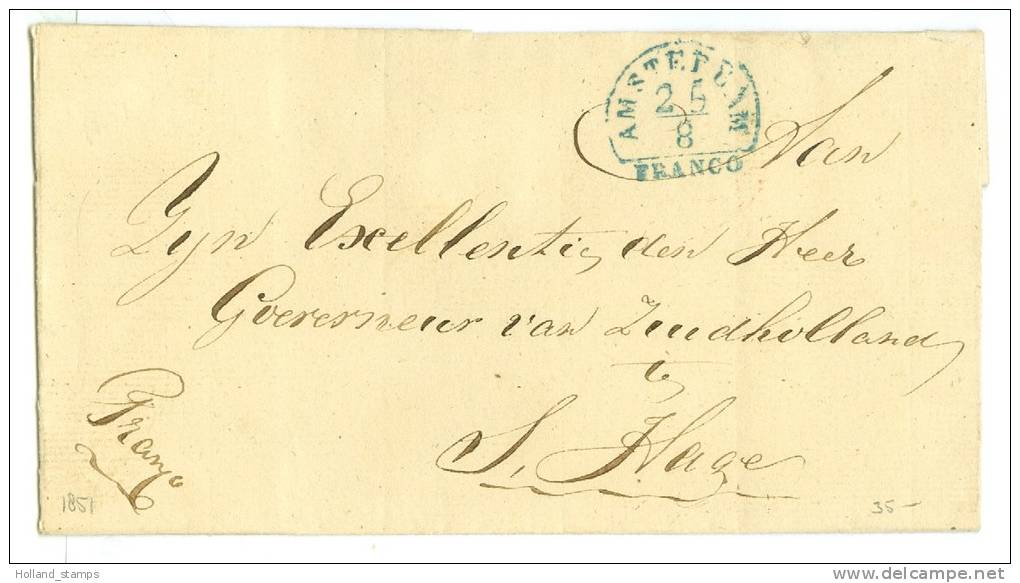 AMSTERDAM
25
8
FRANCO
Aan
Zyn Excellentie den Heer
Goeverneur van Zuidholland
te
S. Hage
Franco
1851
35 -
Holland_stamps
www.delcampe.net